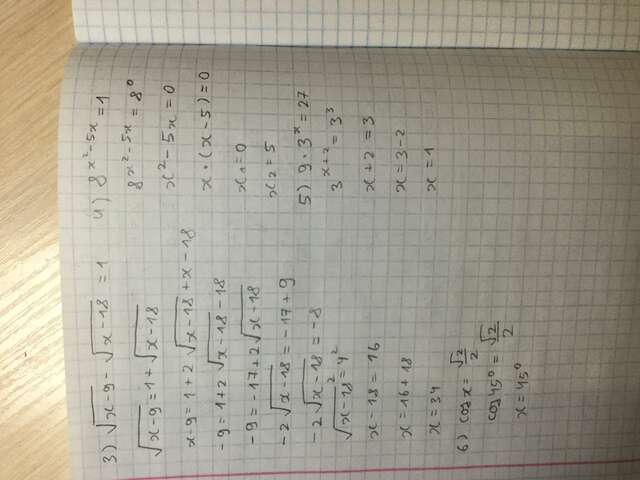 3) √x-9 - √x-18 = 1
√x-9 = 1 + √x-18
x-9 = 1 + 2 √x-18 + x - 18
-9 = 1 + 2 √x-18 - 18
-9 = -17 + 2 √x-18
-2 √x-18 = -17 + 9
-2 √x-18 = -8
√x-18² = 4²
x-18 = 16
x = 16 + 18
x = 34
6) cos x = √2/2
cos 45° = √2/2
x = 45°
4) 8^(x²-5x) = 1
8^(x²-5x) = 8⁰
x² - 5x = 0
x · (x - 5) = 0
x₁ = 0
x₂ = 5
5) 9 · 3ˣ = 27
3^(x+2) = 3³
x + 2 = 3
x = 3 - 2
x = 1